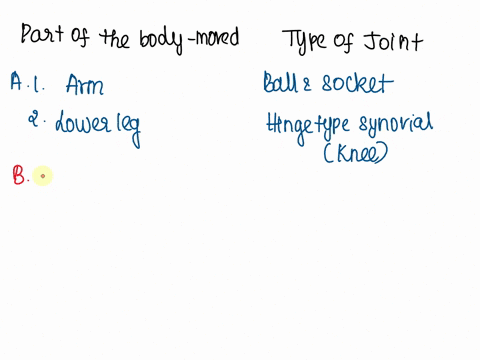 Part of the body-moved Type of Joint
A. 1. Arm Ball & socket
2. Lower leg Hinge type synovial
(Knee)
B.